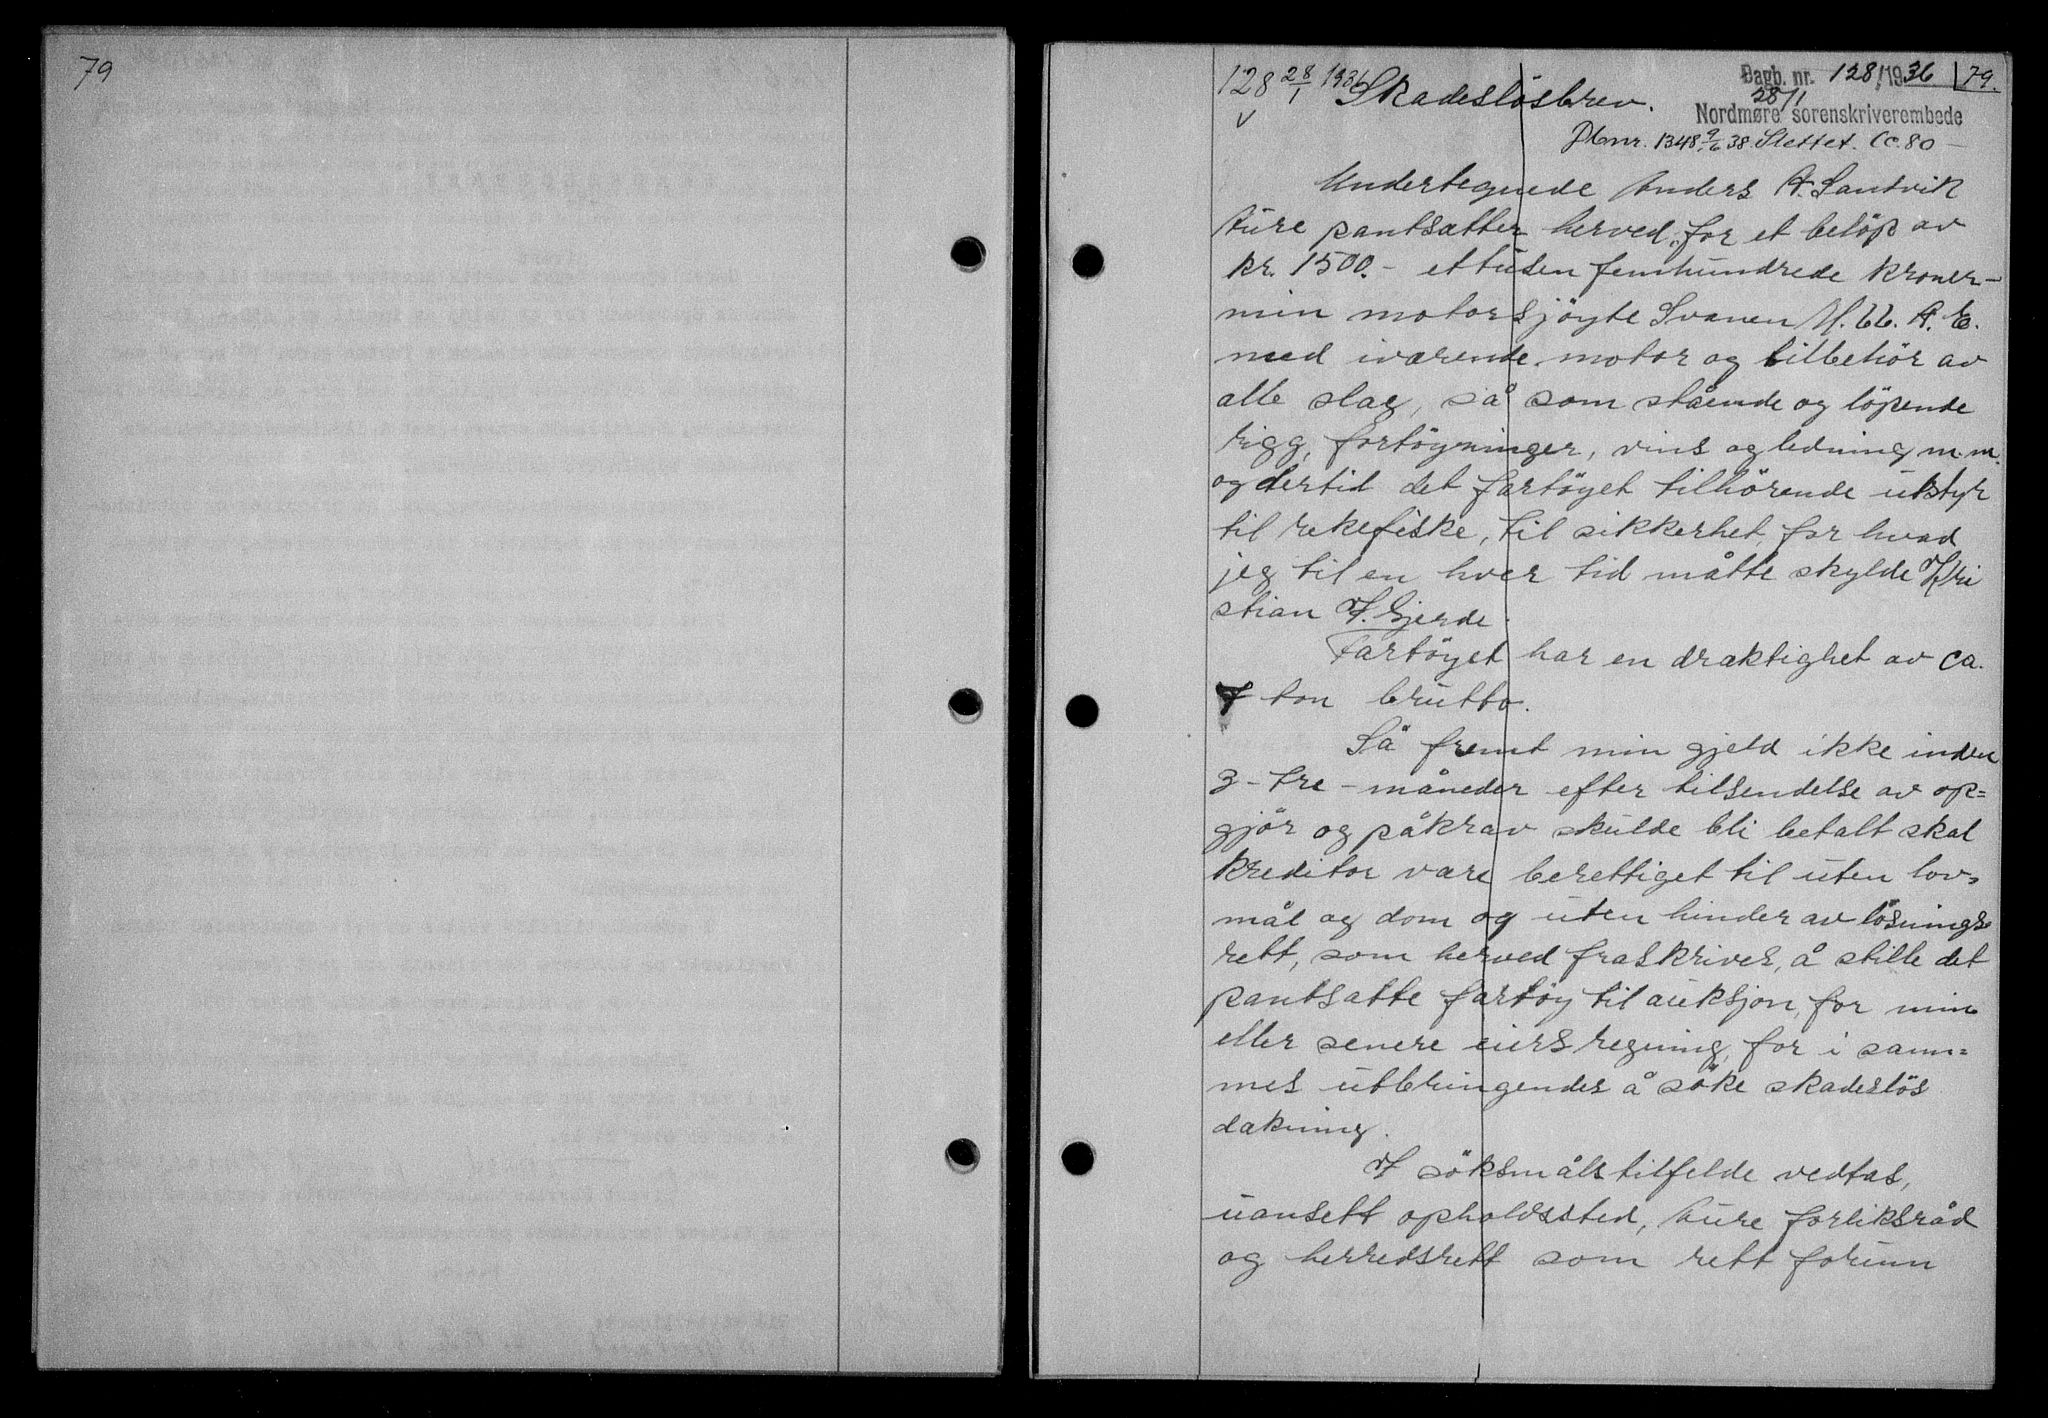 79
128 28/1 1936 Skadesløsbrev.
Dagb. nr. 128/1936 79.
28/1
Nordmøre sorenskriverembede
Dbnr. 1348 9/6 38. Slettet. Cc. 80 –
Undertegnede Anders A. Santvik
Aure pantsætter herved, for et beløp av
kr. 1500.- ettusen femhundrede kroner –
min motorsjöyte Svanen M. 66. A. E.
med iværende motor og tilbehör av
alle slag, så som stående og löpende
rigg, fortöyninger, vins og ledning m.m.
og dertil det fartöyet tilhörende utstyr
til rekefiske, til sikkerhet for hvad
jeg til en hver tid måtte skylde Kri
stian J. Gjerde.
Fartöyet har en dræktighet av ca.
7 ton brutto.
Så fremt min gjeld ikke inden
3 - tre - måneder efter tilsendelse av op=
gjör og påkrav skulde bli betalt skal
kreditor være berettiget til uten lov=
mål og dom og uten hinder av lösnings=
rett, som herved fraskrives, å stille det
pantsatte fartöy til auksjon, for min
eller senere eiers regning, for i sam=
mes utbringendes å söke skadeslös
dækning.
I söksmåls tilfelde vedtas,
uansett opholdssted, Aure forliksråd
og herredsrett som rett forum